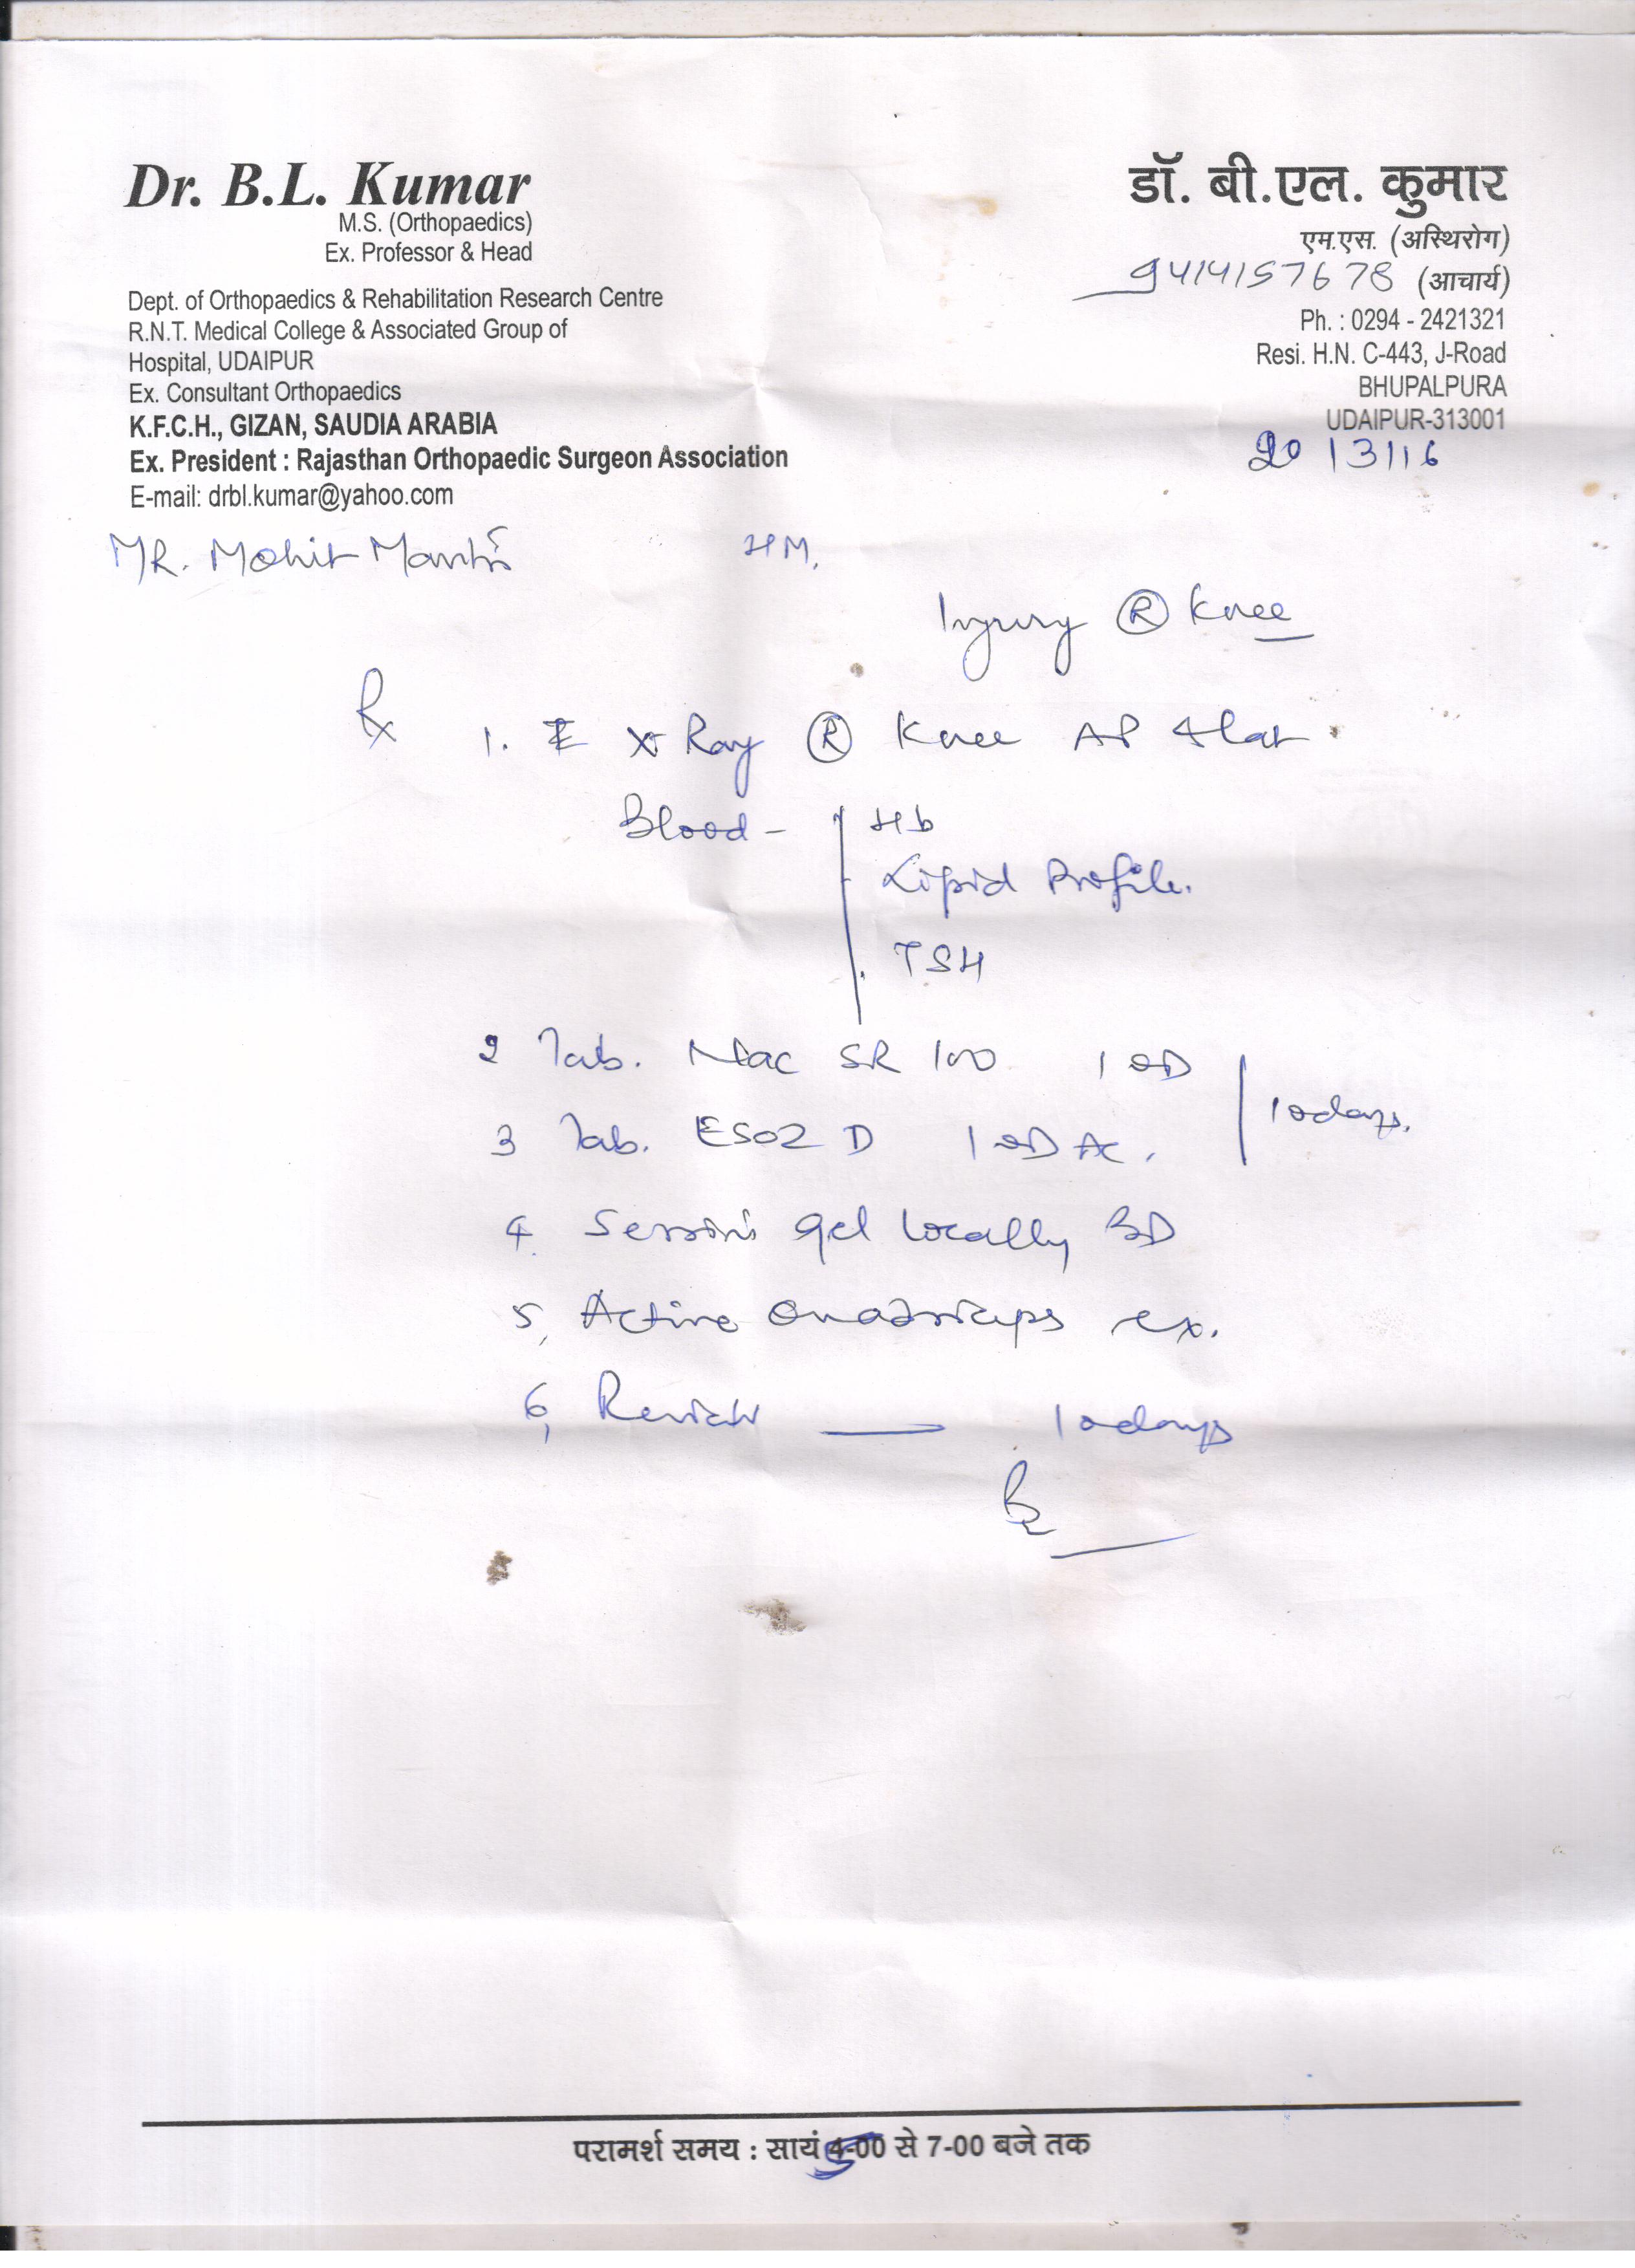 Dr. B.L. Kumar
M.S. (Orthopaedics)
Ex. Professor & Head
Dept. of Orthopaedics & Rehabilitation Research Centre
R.N.T. Medical College & Associated Group of
Hospital, UDAIPUR
Ex. Consultant Orthopaedics
K.F.C.H., GIZAN, SAUDIA ARABIA
Ex. President : Rajasthan Orthopaedic Surgeon Association
E-mail: drbl.kumar@yahoo.com
डॉ. बी.एल. कुमार
एम.एस. (अस्थिरोग)
9414157678 (आचार्य)
Ph. : 0294 - 2421321
Resi. H.N. C-443, J-Road
BHUPALPURA
UDAIPUR-313001
20/3/16
MR. Mohit
Injury Ⓡ Knee
Rx
1. X Ray Ⓡ Knee AP & lat
Blood - Hb
Lipid Profile.
TSH
2 Tab. Nac SR 100 1 OD
3 Tab. ESOZ D 1 OD AC.
10 days.
4. gel locally BD
5, Active Quadriceps ex.
6, Review — 10 days
परामर्श समय : सायं 5-00 से 7-00 बजे तक